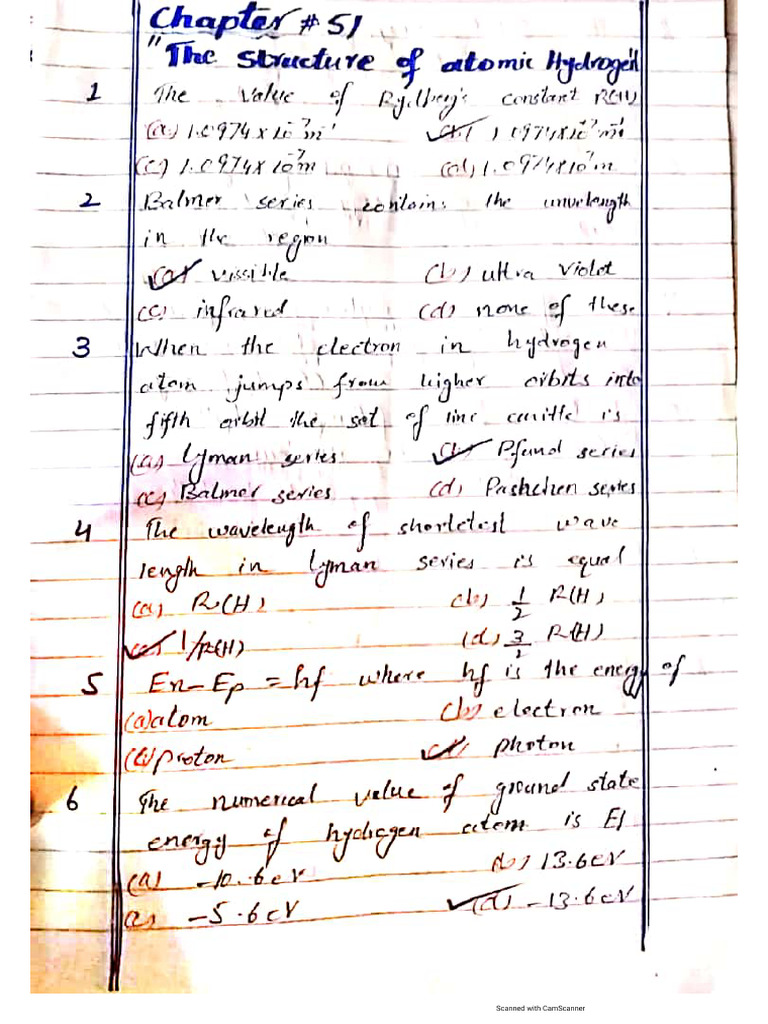 Chapter # 51
"The structure of atomic Hydrogen"
1 The value of Rydberg's constant R(H)
(a) 1.0974 x 10⁻⁷ m⁻¹ 1.0974x10⁷ m⁻¹
(c) 1.0974x 10⁻⁷m (d) 1.0974x10⁷m
2 Balmer series contain: the wavelength
in the region
(a) vissible (b) ultra violet
(c) infrared (d) none of these
3 When the electron in hydrogen
atom jumps from higher orbits into
fifth orbit the set of line is
(a) Lyman series (b) Pfund series
(c) Balmer series (d) Pashchen series
4 The wavelength of shortetest wave
length in lyman series is equal
(a) R(H) (b) 1/2 R(H)
(c) 1/R(H) (d) R(H)
5 En-Ep = hf where hf is the energy of
(a) atom (b) electron
proton photon
6 The numerical value of ground state
energy of hydrogen atom is E1
(a) -10.6eV (b) 13.6eV
-5.6eV (d) -13.6eV
Scanned with CamScanner